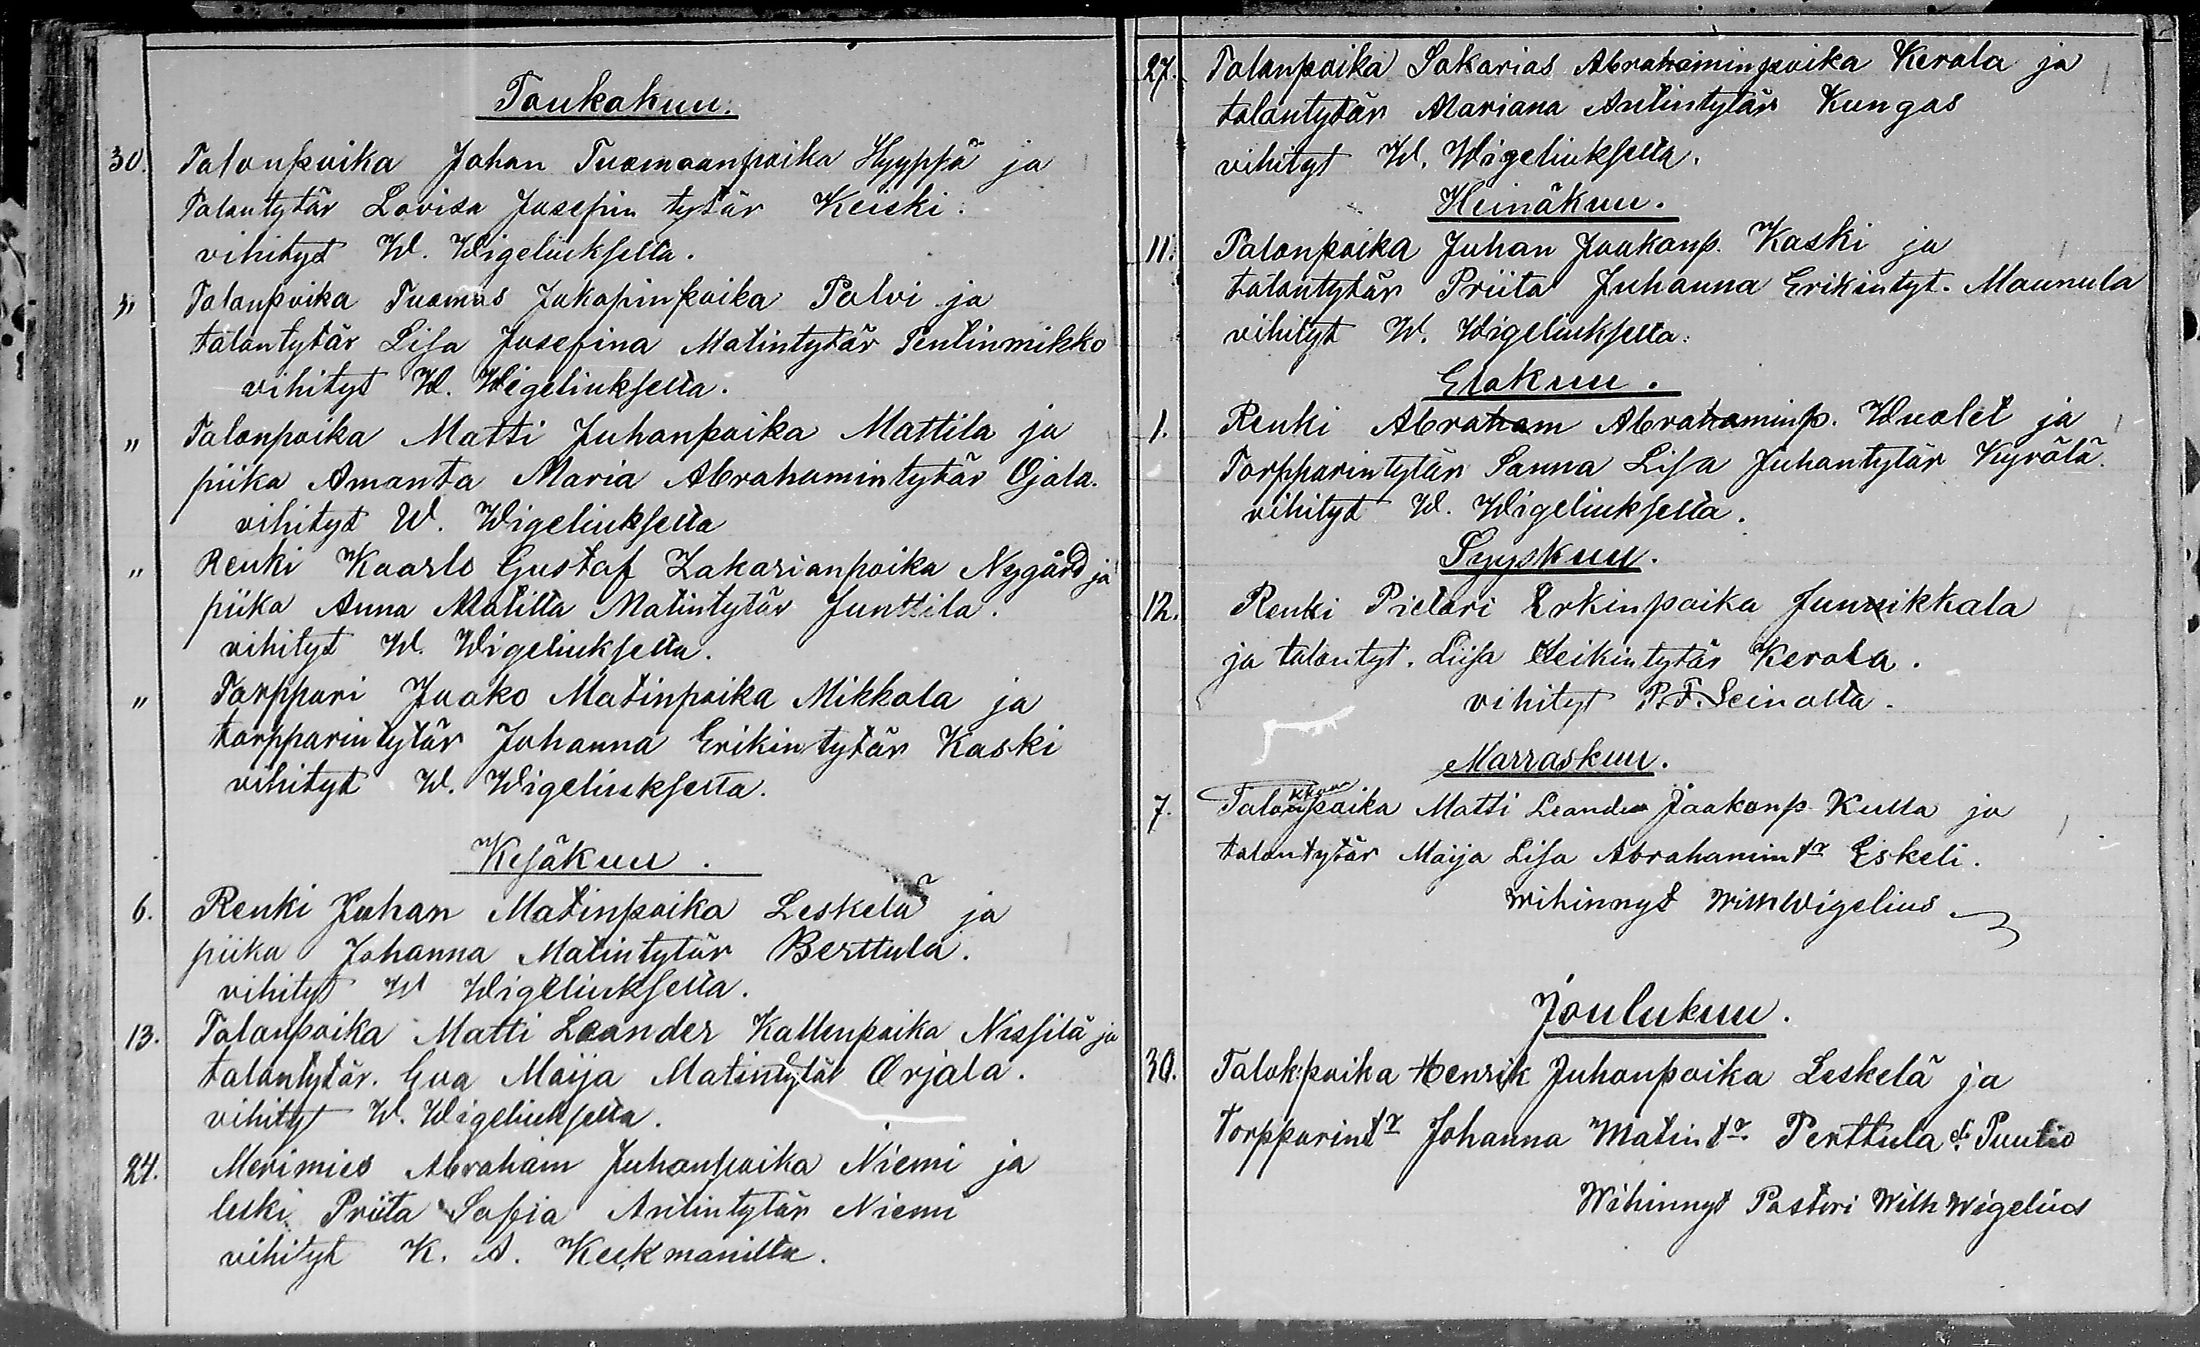 Toukokuu.
30. Talonpoika Johan Tuomaanpoika Hyyppä ja
Talontytär Lovisa Josefin tytär Keiski.
vihityt W. Wigeliukselta.
" Talonpoika Tuomas Jakopinpoika Palvi ja
talontytär Lisa Josefina Matintytär Pentinmikko
vihityt W. Wigeliukselta.
" Talonpoika Matti Juhanpoika Mattila ja
piika Amanta Maria Abrahamintytär Ojala.
vihityt W. Wigeliukselta
" Renki Kaarlo Gustaf Zakarianpoika Nygård ja
piika Anna Matilta Matintytär Junttila.
vihityt W. Wigeliukselta.
" Torppari Jaako Matinpoika Mikkola ja
torpparintytär Johanna Erikintytär Kaski
vihityt W. Wigeliukselta.
Kesäkuu.
6. Renki Juhan Matinpoika Leskelä ja
piika Johanna Matintytär Berttula.
vihityt W Wigeliukselta.
13. Talonpoika Matti Leander Kallenpoika Nissilä ja
talontytär. Eva Maija Matintytär Orjala.
vihityt W. Wigeliukselta.
24. Merimies Abraham Juhanpoika Niemi ja
leski Priita Sofia Antintytär Niemi
vihityt K. A. Keckmanilta.
27. Talonpoika Sakarias Abrahaminpoika Kerola ja
talontytär Mariana Antintytär Kungas
vihityt W. Wigeliukselta.
Heinäkuu.
11. Talonpoika Juhan Jaakonp. Kaski ja
talontytär Priita Juhanna Erikintyt. Maunula
vihityt W. Wigeliukselta.
Elokuu.
1. Renki Abraham Abrahaminp. Wuolet ja
Torpparintytär Sanna Lisa Juhantytär Kyrölä.
vihityt W. Wigeliukselta.
Syyskuu.
12. Renki Pietari Erkinpoika Junnikkala
ja talontyt. Liisa Heikintytär Kerola.
vihityt P. F. Seinolta.
Marraskuu.
7. Talonpoika Matti Leander Jaakonp Kulla ja
talontytär Maija Lisa Abrahamintr Eskeli.
wihinnyt Wilh Wigelius
Joulukuu.
30. Talokpoika Henrik Juhonpoika Leskelä ja
torpparintr Johanna Matintr. Perttula et. Puutio
Wihinnyt Pastori Wilh Wigelius